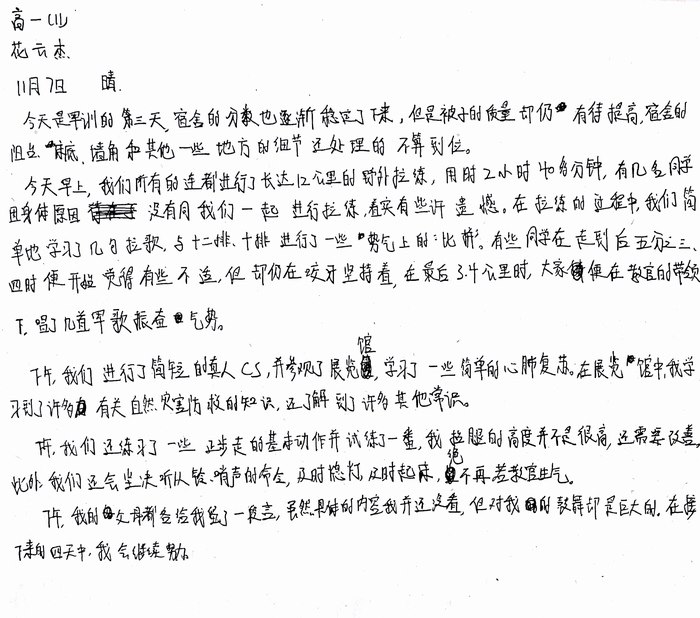 高一(11)
花云杰
11月7日 晴
今天是军训的第三天,宿舍的分数也逐渐稳定了下来,但是被子的质量却仍有待提高,宿舍的
阳台、床底、墙角和其他一些地方的细节还处理的不算到位。
今天早上,我们所有的连都进行了长达12公里的野外拉练,用时2小时40多分钟,有几名同学
因身体原因没有同我们一起进行拉练,着实有些许遗憾。在拉练的过程中,我们简
单地学习了几句拉歌,与十二排、十排进行了一些"势气上的"比拼。有些同学在走到后五分之三、
四时便开始觉得有些不适,但却仍在咬牙坚持着,在最后3.4公里时,大家便在教官的带领
下,唱了几首军歌振奋气势。
下午,我们进行了简短的真人CS,并参观了展览馆,学习了一些简单的心肺复苏。在展览馆中,我学
习到了许多有关自然灾害防救的知识,还了解到了许多其他常识。
下午,我们还练习了一些正步走的基本动作并试练了一番,我拉腿的高度并不是很高,还需要改善,
此外我们还会坚决听从铃、哨声的命令,及时熄灯,及时起床,绝不再惹教官生气。
下午,我的父母都给我写了一段言,虽然具体的内容我并还没看,但对我的鼓舞却是巨大的。在接
下来的四天中,我会继续努力。